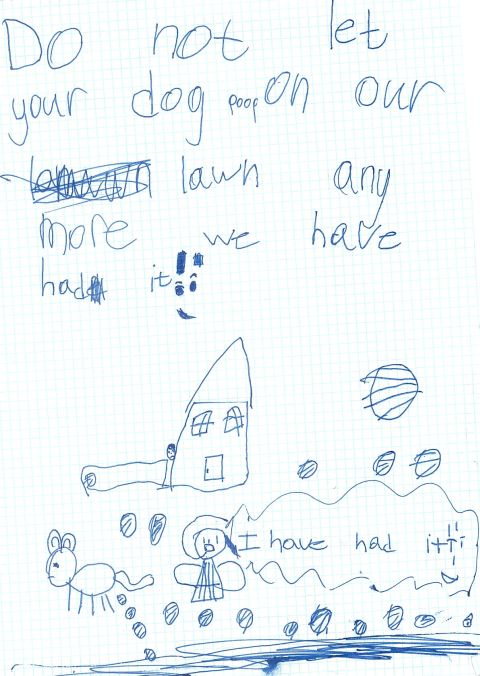 Do not let
your dog poop on our
lawn any
more we have
had it!!
I have had it!!!